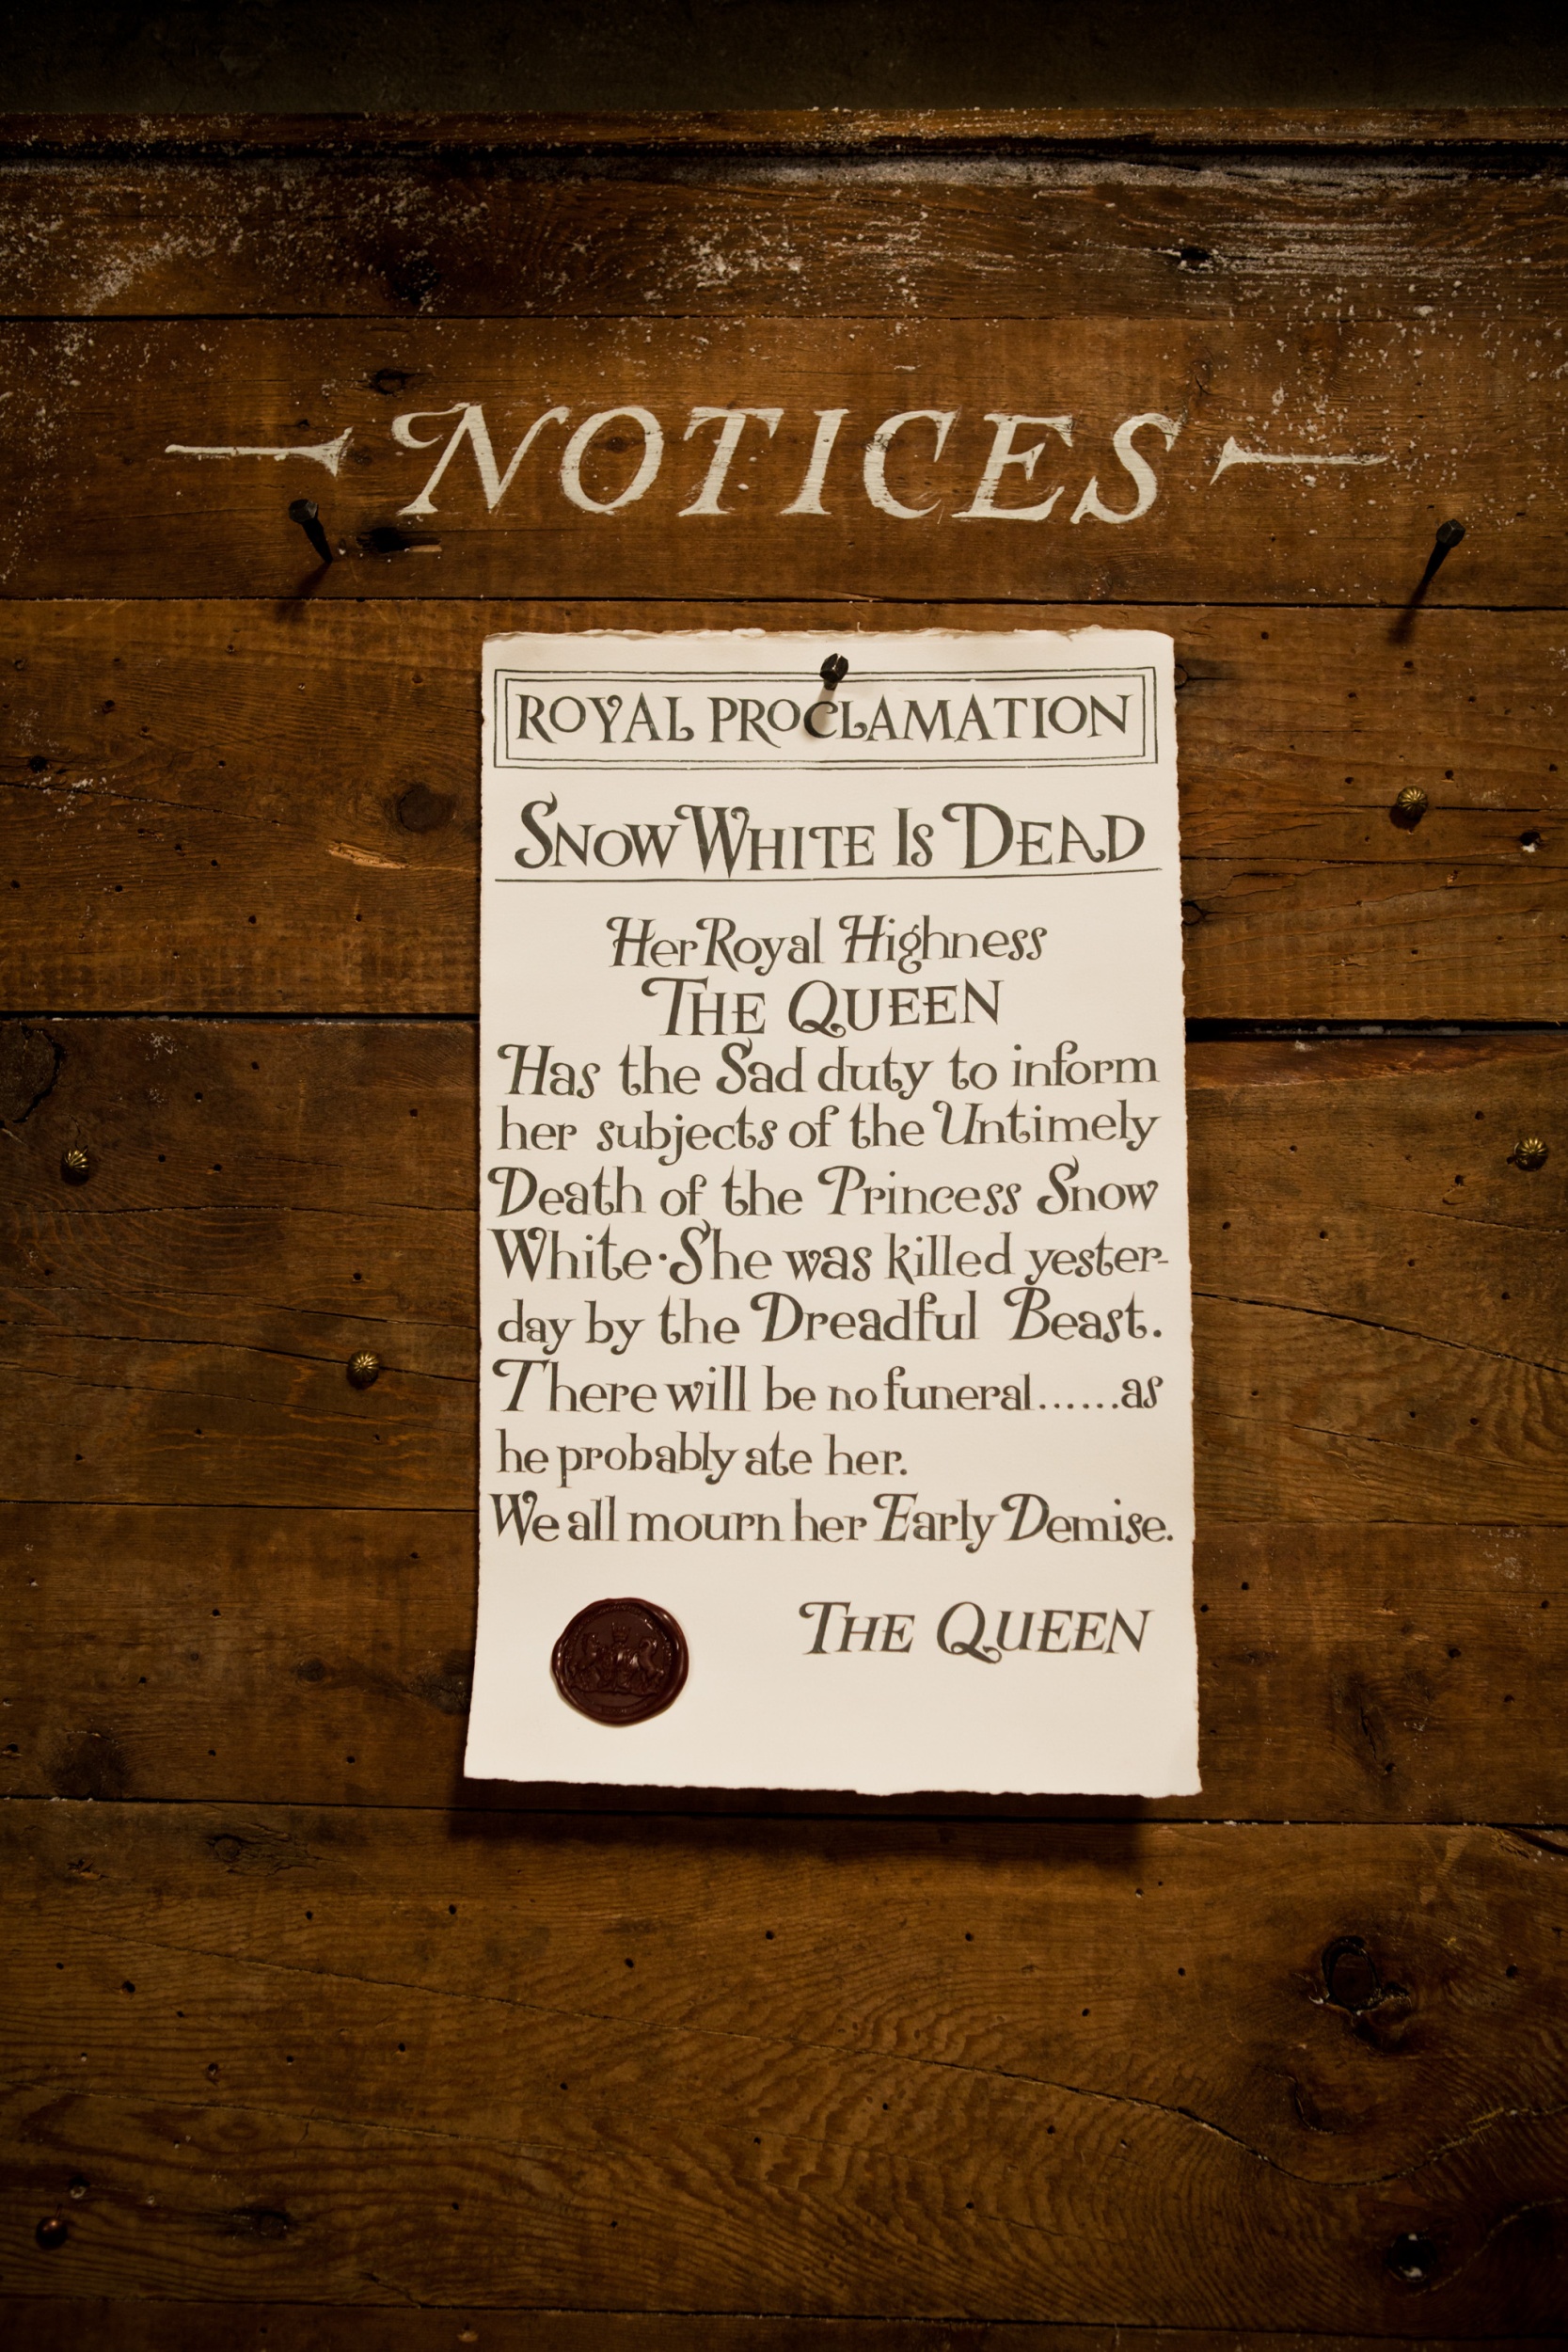 NOTICES
ROYAL PROCLAMATION
SNOW WHITE IS DEAD
Her Royal Highness
THE QUEEN
Has the Sad duty to inform
her subjects of the Untimely
Death of the Princess Snow
White·She was killed yester-
day by the Dreadful Beast.
There will be no funeral......as
he probably ate her.
We all mourn her Early Demise.
THE QUEEN